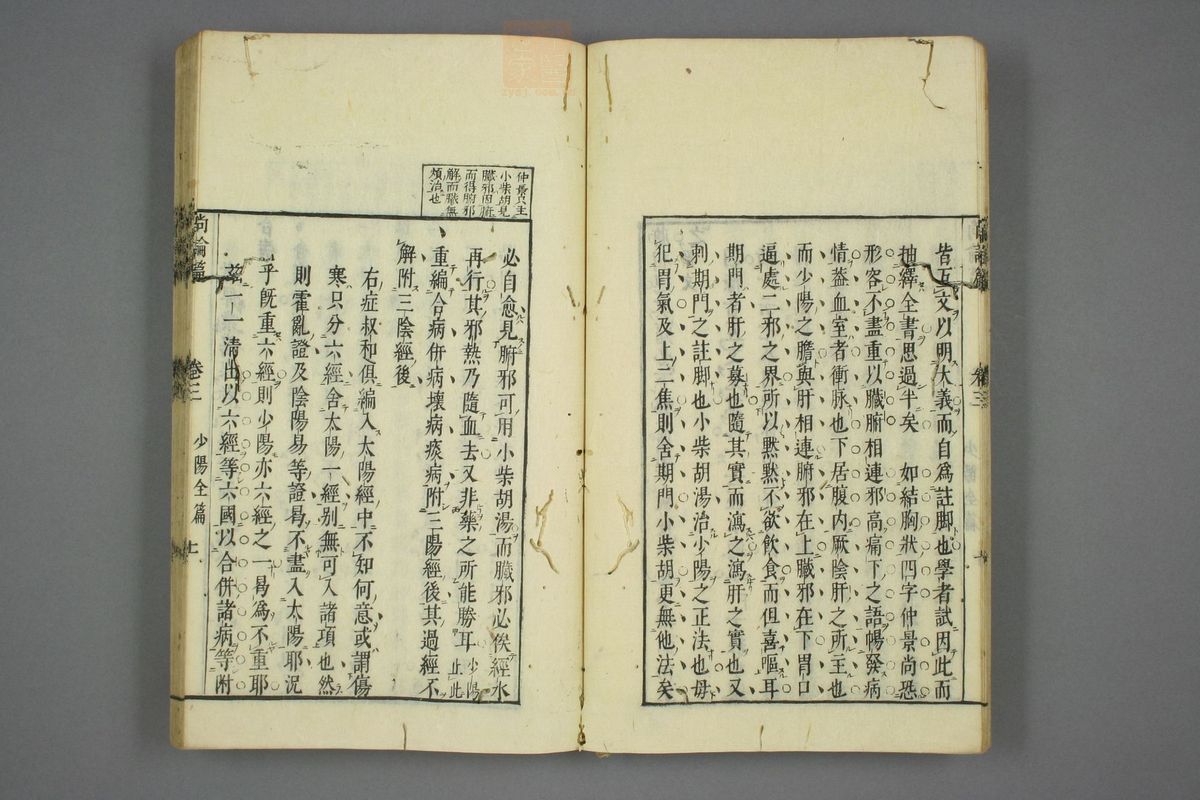 皆互文以明大義而自爲註脚也學者試因此而
紬繹全書思過半矣　如結胸狀四字仲景尚恐
形容不盡重以臟腑相連邪高痛下之語暢發病
情葢血室者衝脉也下居腹内厥陰肝之所主也
而少陽之膽與肝相連腑邪在上臟邪在下胃口
逼處二邪之界所以默默不欲飲食而但喜嘔耳
期門者肝之募也隨其實而瀉之瀉肝之實也又
刺期門之註脚也小柴胡湯治少陽之正法也毋
犯胃氣及上二焦則舍期門小柴胡更無他法矣
卷三
仲景只主
小柴胡見
臟邪因腑
而得腑邪
解而臟無
煩治也
必自愈見腑邪可用小柴胡湯而臟邪必俟經水
再行其邪熱乃隨血去又非藥之所能勝耳少陽止此
重編合病併病壞病痰病附三陽經後其過經不
解附三陰經後
右症叔和俱編入太陽經中不知何意或謂傷
寒只分六經舍太陽一經别無可入諸項也然
則霍亂證及陰陽易等證曷不盡入太陽耶况
乎旣重六經則少陽亦六經之一曷爲不重耶
茲一一淸出以六經等六國以合併諸病等附
尚論篇
卷三
少陽全篇